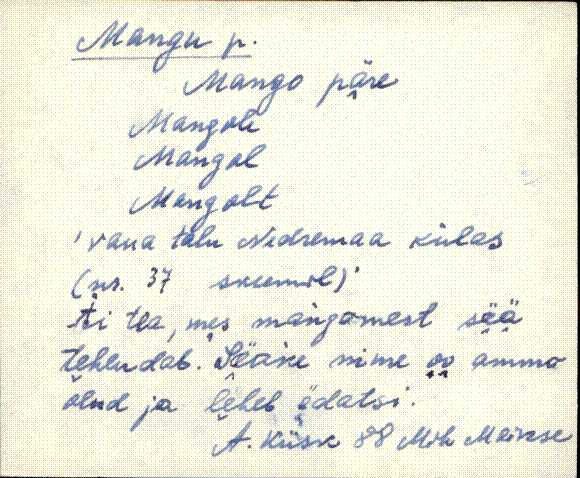 Mangu p.
Mango päre
Mangole
Mangol
Mangolt
'vana talu Nedremaa külas
(nr. 37 skeemil)'
Äi tea, mes mangomest sëä
tehendab. Sëäne nime oo ammo
õlnd ja lëheb ëdatsi.
A. Küsk 88 Mih